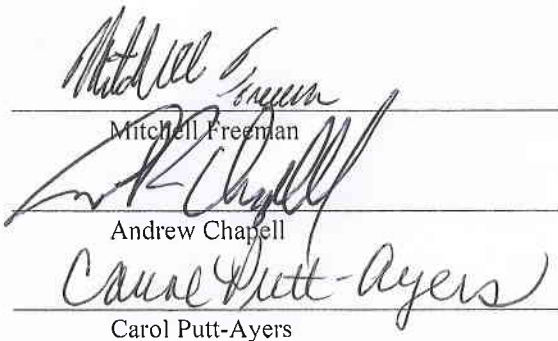 Mitchell J. Freeman
Mitchell Freeman
Chapell
Andrew Chapell
Carol Putt-Ayers
Carol Putt-Ayers